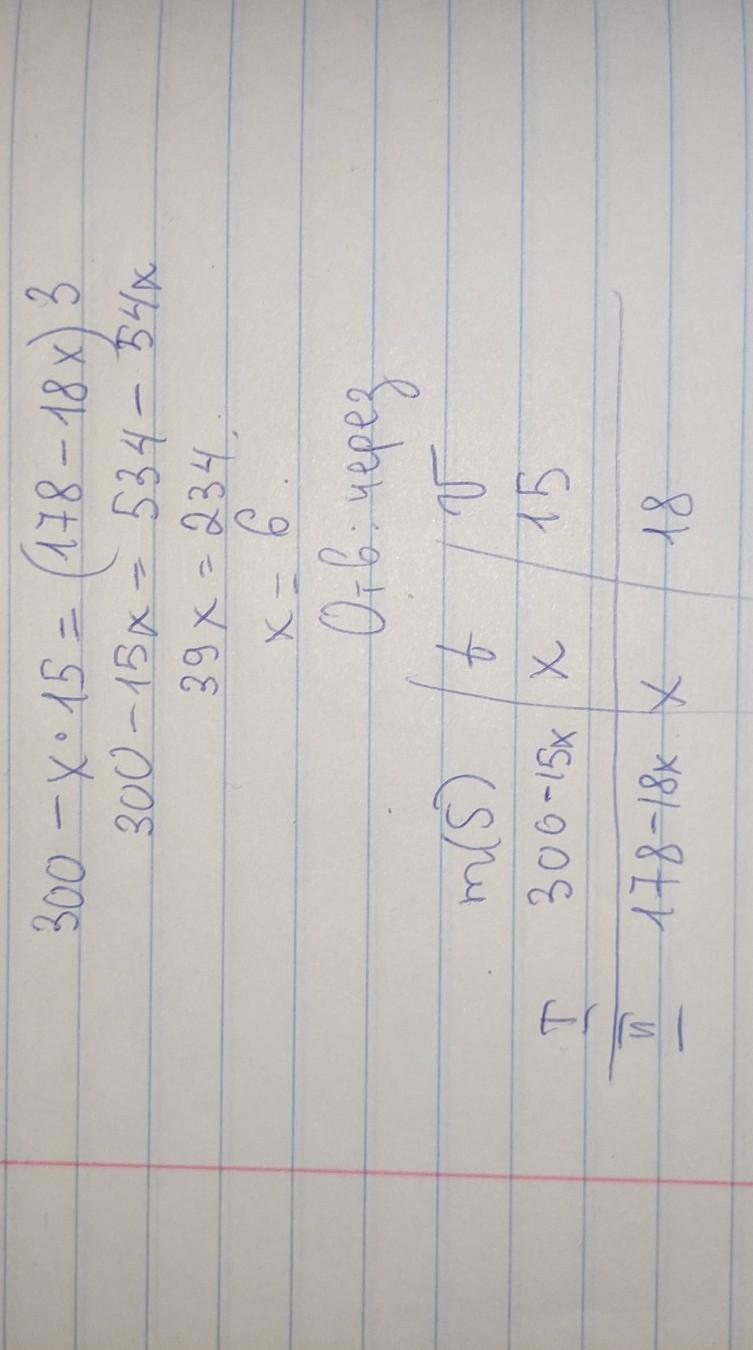 300 - x · 15 = (178 - 18x) 3
300 - 15x = 534 - 54x
39x = 234.
x = 6.
Отв: через
m(S) / t / v
I 300-15x x 15
II 178-18x x 18